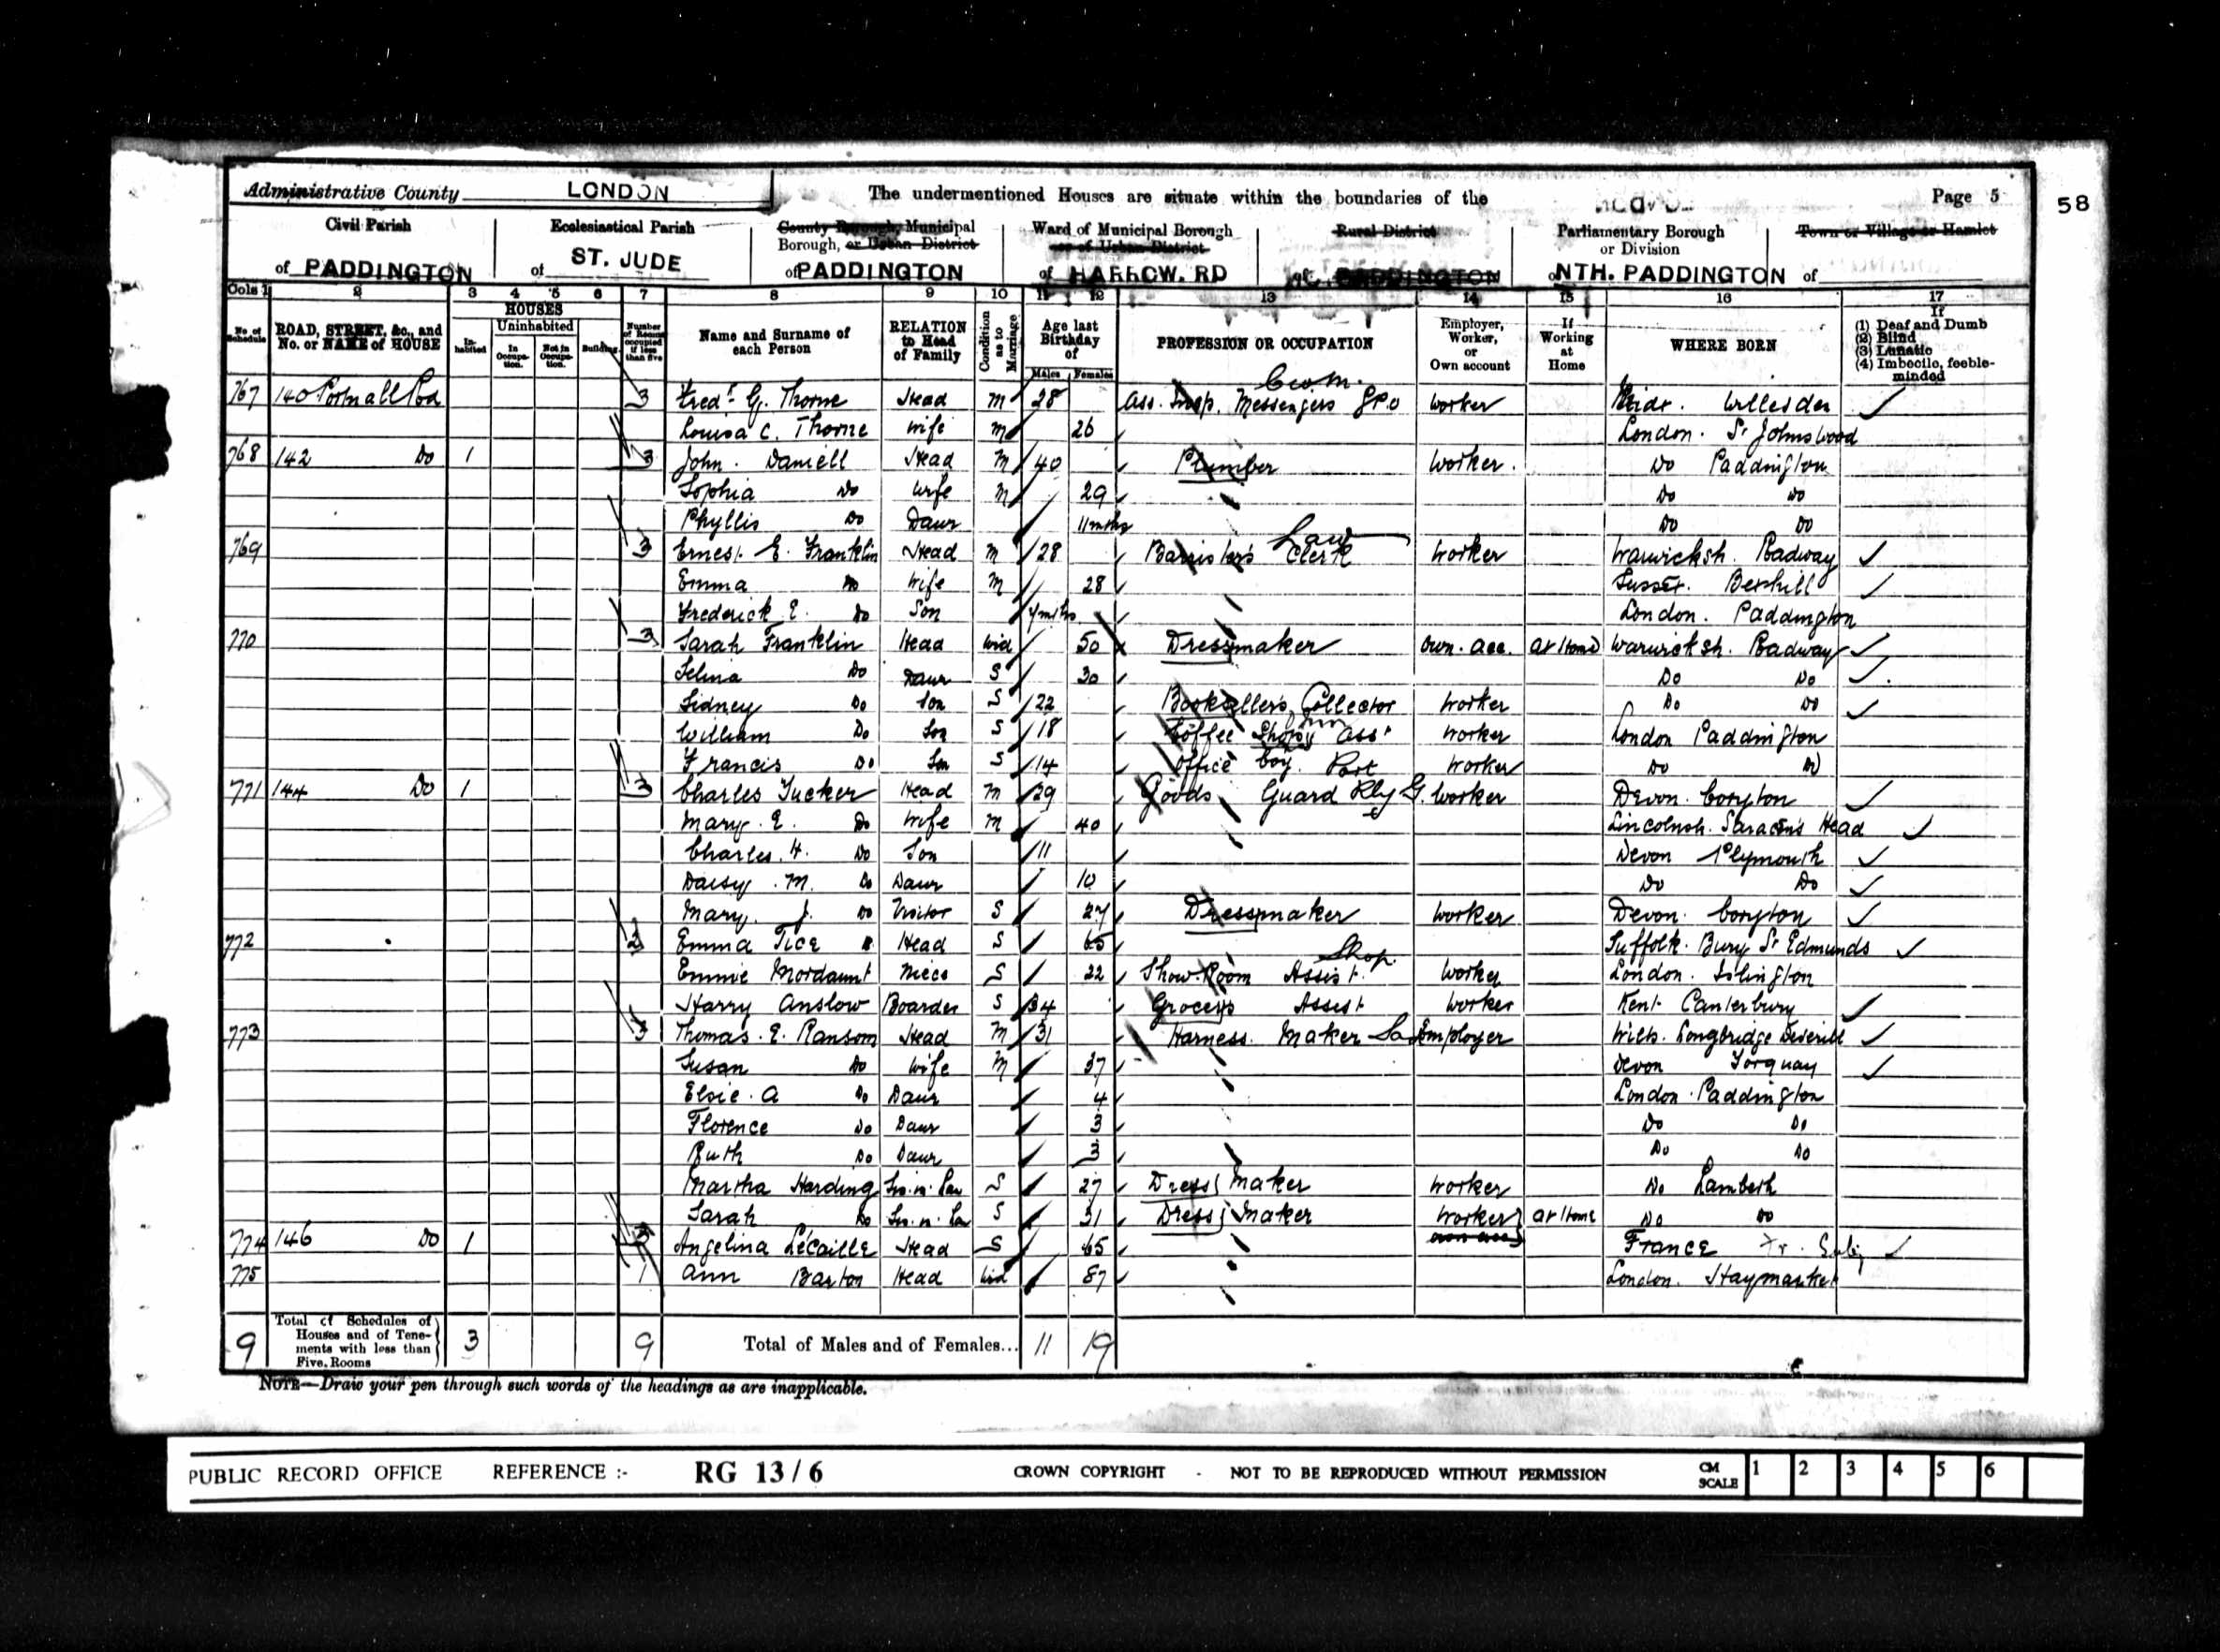 Administrative County LONDON The undermentioned Houses are situate within the boundaries of the Page 5
58
Civil Parish of PADDINGTON
Ecclesiastical Parish of ST. JUDE
County Borough, Municipal Borough, or Urban District of PADDINGTON
Ward of Municipal Borough or of Urban District of HARROW. RD
Rural District of PADDINGTON
Parliamentary Borough or Division of NTH. PADDINGTON
Town or Village or Hamlet of
Cols 1 2 3 4 5 6 7 8 9 10 11 12 13 14 15 16 17
No. of Schedule
ROAD, STREET, &c., and No. or NAME of HOUSE
HOUSES
Inhabited
Uninhabited
In Occupation.
Not in Occupation.
Building
Number of Rooms occupied if less than five
Name and Surname of each Person
RELATION to Head of Family
Condition as to Marriage
Age last Birthday of
Males Females
PROFESSION OR OCCUPATION
Employer, Worker, or Own account
If Working at Home
WHERE BORN
If
(1) Deaf and Dumb
(2) Blind
(3) Lunatic
(4) Imbecile, feeble-minded
767 140 Portnall Rd 3 Fred. G. Thorne Head M 28 Ass. Insp. Messengers G P O Worker Midx. Willesden
Louisa C. Thorne Wife M 26 London. St Johns Wood
768 142 Do 1 3 John. Daniell Head M 40 Plumber Worker. Do Paddington
Sophia Do Wife M 29 Do Do
Phyllis Do Daur 11 mths Do Do
769 3 Ernest E. Franklin Head M 28 Barrister's Clerk Law Worker Warwicksh. Radway
Emma Do Wife M 28 Sussex. Bexhill
Frederick E. Do Son 4 mths London. Paddington
770 3 Sarah Franklin Head Wid 50 Dressmaker Own. acc. At Home Warwicksh. Radway
Selina Do Daur S 30 Do Do
Sidney Do Son S 22 Booksellers Collector Worker Do Do
William Do Son S 18 Coffee Shop Asst Worker London Paddington
Francis Do Son S 14 Office boy. Port Worker Do Do
771 144 Do 1 3 Charles Tucker Head M 39 Goods Guard Rly G. Worker Devon. Coryton
Mary. E. Do Wife M 40 Lincolnsh. Saracen's Head
Charles. H. Do Son 11 Devon Plymouth
Daisy. M. Do Daur 10 Do Do
Mary. J. Do Visitor S 27 Dressmaker Worker Devon. Coryton
772 2 Emma Tice Head S 65 Suffolk. Bury St Edmunds
Emmie Mordaunt Niece S 22 Show Room Assist. Shop Worker London. Islington
Harry Anslow Boarder S 34 Grocers Assist Worker Kent Canterbury
773 3 Thomas. E. Ransom Head M 31 Harness Maker Employer Wilts. Longbridge Deverill
Susan Do Wife M 37 Devon Torquay
Elsie. A Do Daur 4 London. Paddington
Florence Do Daur 3 Do Do
Ruth Do Daur 3 Do Do
Martha Harding Sis. in. Law S 27 Dress Maker Worker Do Lambeth
Sarah Do Sis. in. Law S 31 Dress Maker Worker At Home Do Do
774 146 Do 1 3 Angelina Lecaille Head S 65 own acc France
775 1 Ann Barton Head Wid 87 London. Haymarket
9 Total of Schedules of Houses and of Tenements with less than Five Rooms 3 9 Total of Males and of Females... 11 19
NOTE—Draw your pen through such words of the headings as are inapplicable.
PUBLIC RECORD OFFICE REFERENCE :- RG 13/6 CROWN COPYRIGHT - NOT TO BE REPRODUCED WITHOUT PERMISSION CM SCALE 1 2 3 4 5 6